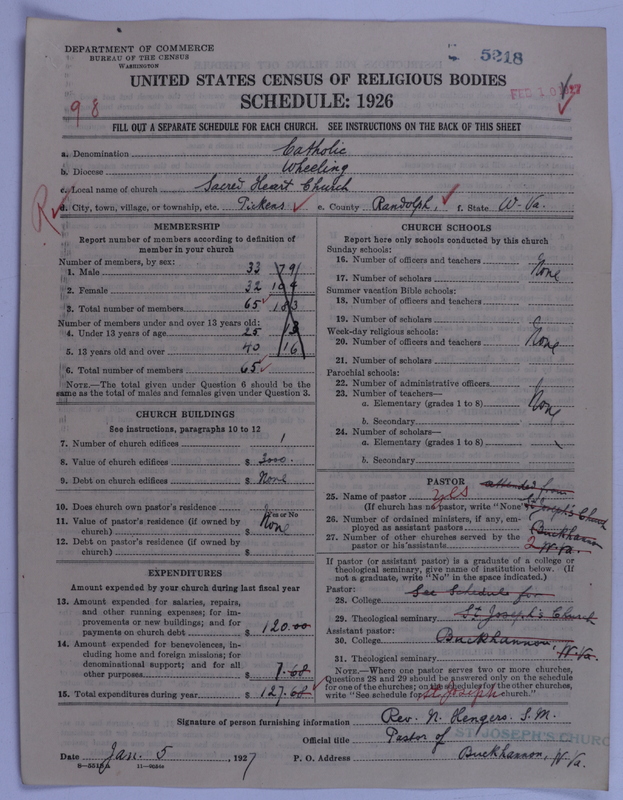 DEPARTMENT OF COMMERCE
BUREAU OF THE CENSUS
WASHINGTON
5218
UNITED STATES CENSUS OF RELIGIOUS BODIES
SCHEDULE: 1926
FEB 10 1927
98
FILL OUT A SEPARATE SCHEDULE FOR EACH CHURCH. SEE INSTRUCTIONS ON THE BACK OF THIS SHEET
a. Denomination Catholic
b. Diocese Wheeling
c. Local name of church Sacred Heart Church
R
d. City, town, village, or township, etc. Pickens e. County Randolph, f. State W. Va.
MEMBERSHIP
Report number of members according to definition of
member in your church
Number of members, by sex:
1. Male 33 79
2. Female 32 104
3. Total number of members 65 183
Number of members under and over 13 years old:
4. Under 13 years of age 25 13
5. 13 years old and over 40 16
6. Total number of members 65
NOTE.—The total given under Question 6 should be the
same as the total of males and females given under Question 3.
CHURCH BUILDINGS
See instructions, paragraphs 10 to 12
7. Number of church edifices 1
8. Value of church edifices $ 3000.
9. Debt on church edifices $ None
10. Does church own pastor's residence
Yes or No
11. Value of pastor's residence (if owned by
church) $ None
12. Debt on pastor's residence (if owned by
church) $
EXPENDITURES
Amount expended by your church during last fiscal year
13. Amount expended for salaries, repairs,
and other running expenses; for im-
provements or new buildings; and for
payments on church debt $ 120.00
14. Amount expended for benevolences, in-
cluding home and foreign missions; for
denominational support; and for all
other purposes $ 7.68
15. Total expenditures during year $ 127.68
CHURCH SCHOOLS
Report here only schools conducted by this church
Sunday schools:
16. Number of officers and teachers
17. Number of scholars None
Summer vacation Bible schools:
18. Number of officers and teachers
19. Number of scholars
Week-day religious schools:
20. Number of officers and teachers None
21. Number of scholars
Parochial schools:
22. Number of administrative officers
23. Number of teachers—
a. Elementary (grades 1 to 8) None
b. Secondary
24. Number of scholars—
a. Elementary (grades 1 to 8)
b. Secondary
PASTOR attended from
25. Name of pastor yes
(If church has no pastor, write "None") St Joseph's Church
26. Number of ordained ministers, if any, em-
ployed as assistant pastors Buckhannon
27. Number of other churches served by the
pastor or his assistants 2 W. Va.
If pastor (or assistant pastor) is a graduate of a college or
theological seminary, give name of institution below. (If
not a graduate, write "No" in the space indicated.)
Pastor: See Schedule for
28. College
29. Theological seminary St. Joseph's Church
Assistant pastor:
30. College Buckhannon, W. Va.
31. Theological seminary
NOTE.—Where one pastor serves two or more churches,
Questions 28 and 29 should be answered only on the schedule
for one of the churches; on the schedules for the other churches,
write "See schedule for St Joseph church."
Signature of person furnishing information Rev. N. Hengers. S.M.
Official title Pastor of ST. JOSEPH'S CHURC
Date Jan. 5, 1927 P. O. Address Buckhannon, W. Va.